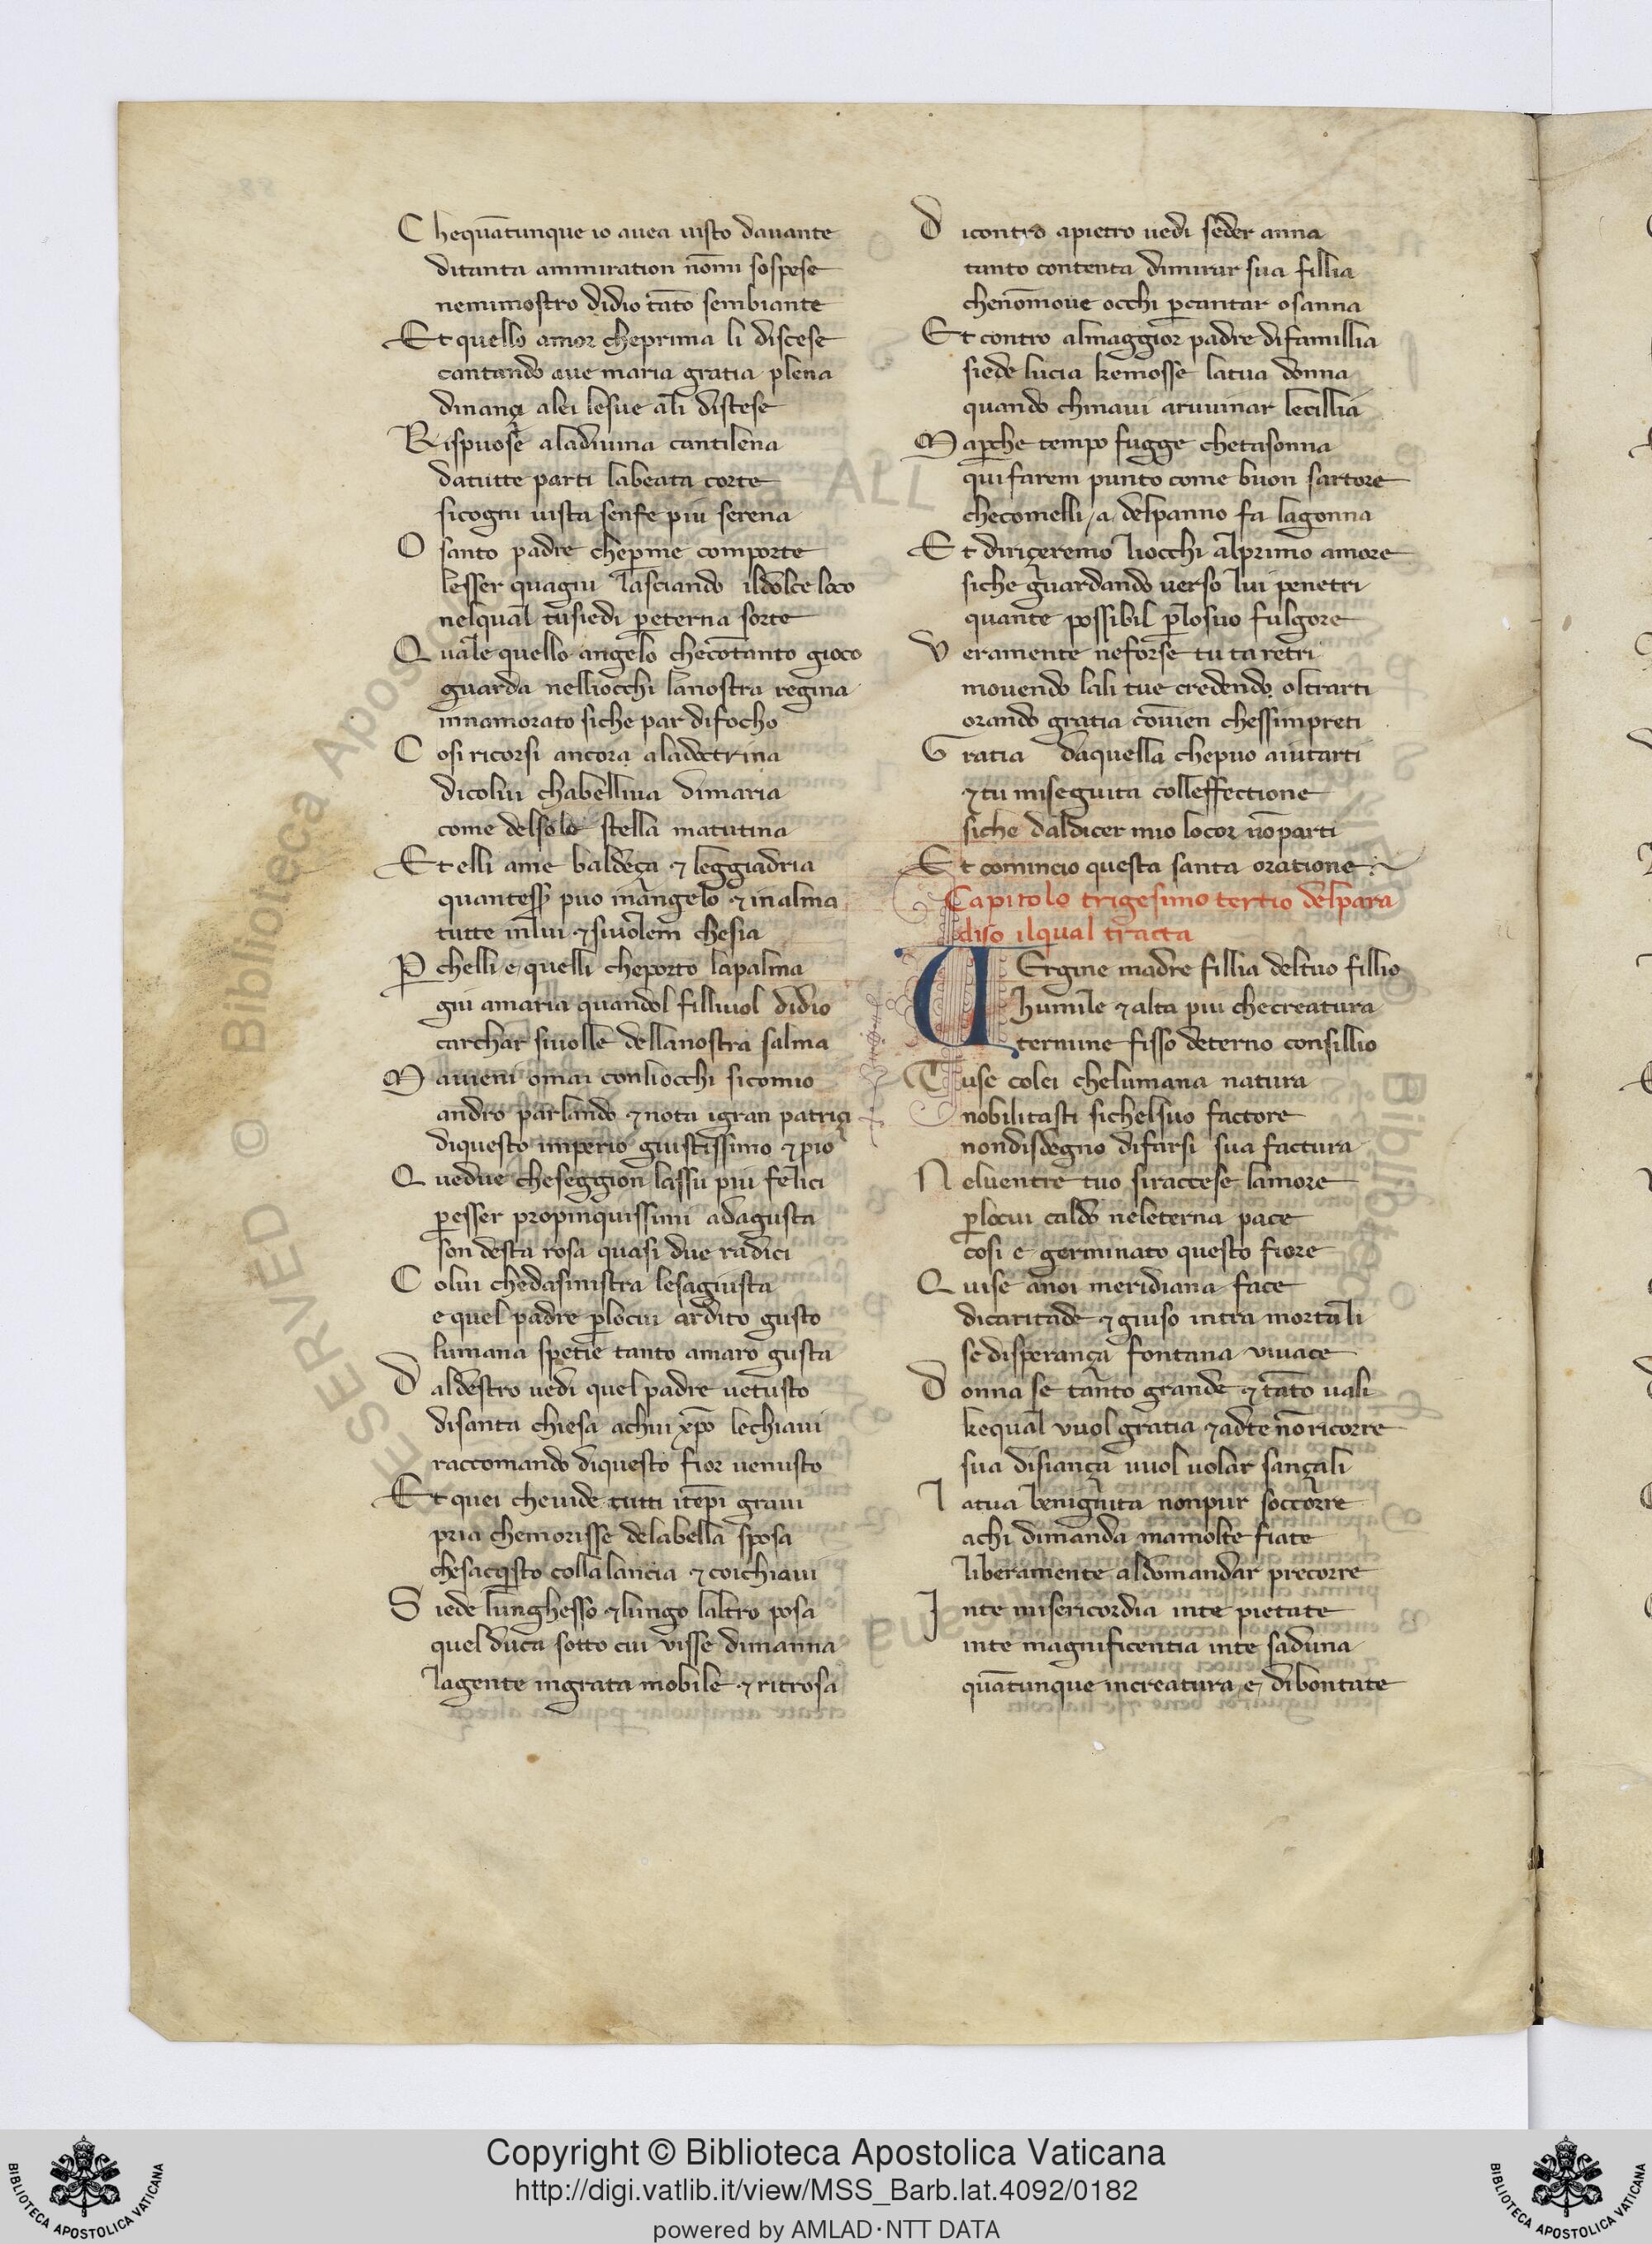 C hequãtunque io auea uisto dauante
ditanta ammiration nõmi sospese
nemimostro didio tãto sembiante
Et quello amor cheprima li discese
cantando aue maria gratia plena
dinançi alei lesue ali distese
Rispuose aladiuina cantilena
datutte parti labeata corte
sicogni uista senfe piu serena
O santo padre cheꝑme comporte
lesser quagiu lasciando ildolce loco
nelqual tusiedi ꝑeterna sorte
Q uale quello angelo checõtanto gioco
guarda nelliocchi lanostra regina
innamorato siche par difocho
C osi ricorsi ancora aladoctrina
dicolui chabelliua dimaria
come delsole stella matutina
Et elli ame baldeça ⁊ leggiadria
quantess puo inangelo ⁊ inalma
tutte inlui ⁊siuolem chesia
P chelli e quelli cheporto lapalma
giu amaria quandol filliuol didio
carchar siuolle dellanostra salma
M auieni omai conliocchi sicomio
andro parlando ⁊nota igran patriçi
diquesto imperio giustissimo ⁊pio
Q uedue cheseggion lassu piu felici
ꝑesser propinquissimi adagusta
son desta rosa quasi due radici
C olui chedasinistra lesagiusta
e quel padre ꝑlocui ardito gusto
lumana spetie tanto amaro gusta
D aldestro uedi quel padre uetusto
disanta chiesa achui xpõ lechiaui
raccomando diquesto fior uenusto
Et quei cheuide tutti itẽpi graui
pria chemorisse delabella sposa
chesacqisto collalancia ⁊coichiaui
S iede lunghesso ⁊lungo laltro posa
quel duca sotto cui uisse dimanna
lagente ingrata mobile ⁊ritrosa
D icontro apietro uedi seder anna
tanto contenta dimirar sua fillia
chenõmoue occhi ꝑcantar osanna
Et contro almaggior padre difamillia
siede lucia kemosse latua donna
quando chinaui aruuinar lecillia
M aꝑche tempo fugge chetasonna
qui farem punto come buon sartore
checomelli a delpanno fa lagonna
Et diriçeremo liocchi alprimo amore
siche guardando uerso lui penetri
quante possibil ꝑlosuo fulgore
V eramente neforse tu taretri
mouendo lali tue credendo oltrarti
orando gratia cõuien chessimpreti
G ratia daquella chepuo aiutarti
⁊tu miseguita colleffectione
siche daldicer mio locor nõparti
Et comincio questa santa oratione
Capitolo trigesimo tertio delpara
diso ilqual tracta
VErgine madre fillia deltuo fillio
humile ⁊alta piu checreatura
termine fisso deterno consillio
Tuse colei chelumana natura
nobilitasti sichelsuo factore
nondisdegno difarsi sua factura
N eluentre tuo siraccese lamore
ꝑlocui caldo neleterna pace
cosi e germinato questo fiore
Q uise anoi meridiana face
dicaritade ⁊giuso intra mortali
sedisperança fontana uiuace
D onna se tanto grande ⁊tãto uali
kequal vuol gratia ⁊adte nõricorre
sua disiança vuol uolar sançali
L atua benignita nonpur soccorre
achi dimanda mamolte fiate
liberamente aldomandar precorre
I nte misericordia inte pietate
inte magnificentia inte saduna
quãtunque increatura e dibontate
Copyright © Biblioteca Apostolica Vaticana
http://digi.vatlib.it/view/MSS_Barb.lat.4092/0182
powered by AMLAD·NTT DATA
BIBLIOTECA APOSTOLICA VATICANA
BIBLIOTECA APOSTOLICA VATICANA